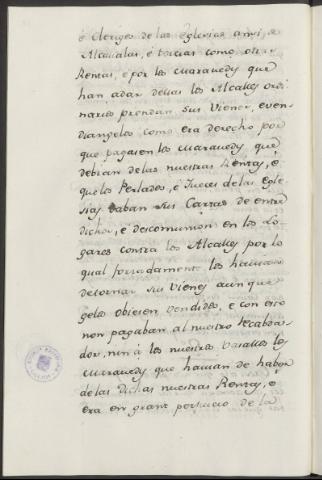 è Clerigos de las Eglesias ansi, de
Alcavalas, è tercias como otras
Rentas, è por los maravedis que
han adar dellas los Alcalles ordi
narios prendan sus Vienes, e ven-
diangelos como era derecho por
que pagasen los maravedis que
debian de las nuestras Rentas, è
que los Perlados, è Jueces de las Egle-
sias daban sus Cartas de entre
dichos, è descomunion en los Lo-
gares contra los Alcalles por lo
qual forzadamente les havian
de tornar sus Vienes aunque
gelos obiesen vendidos, e con esto
non pagaban al nuestro recabda-
dor, nin à los nuestros Vasallos los
maravedis que havian de haber
de las dichas nuestras Rentas, e
era en grant perjuicio de la